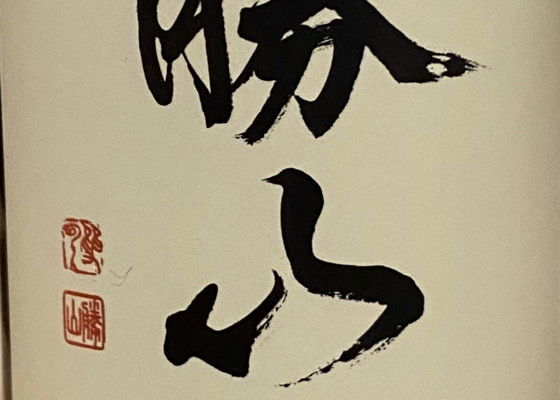 勝山
勝山